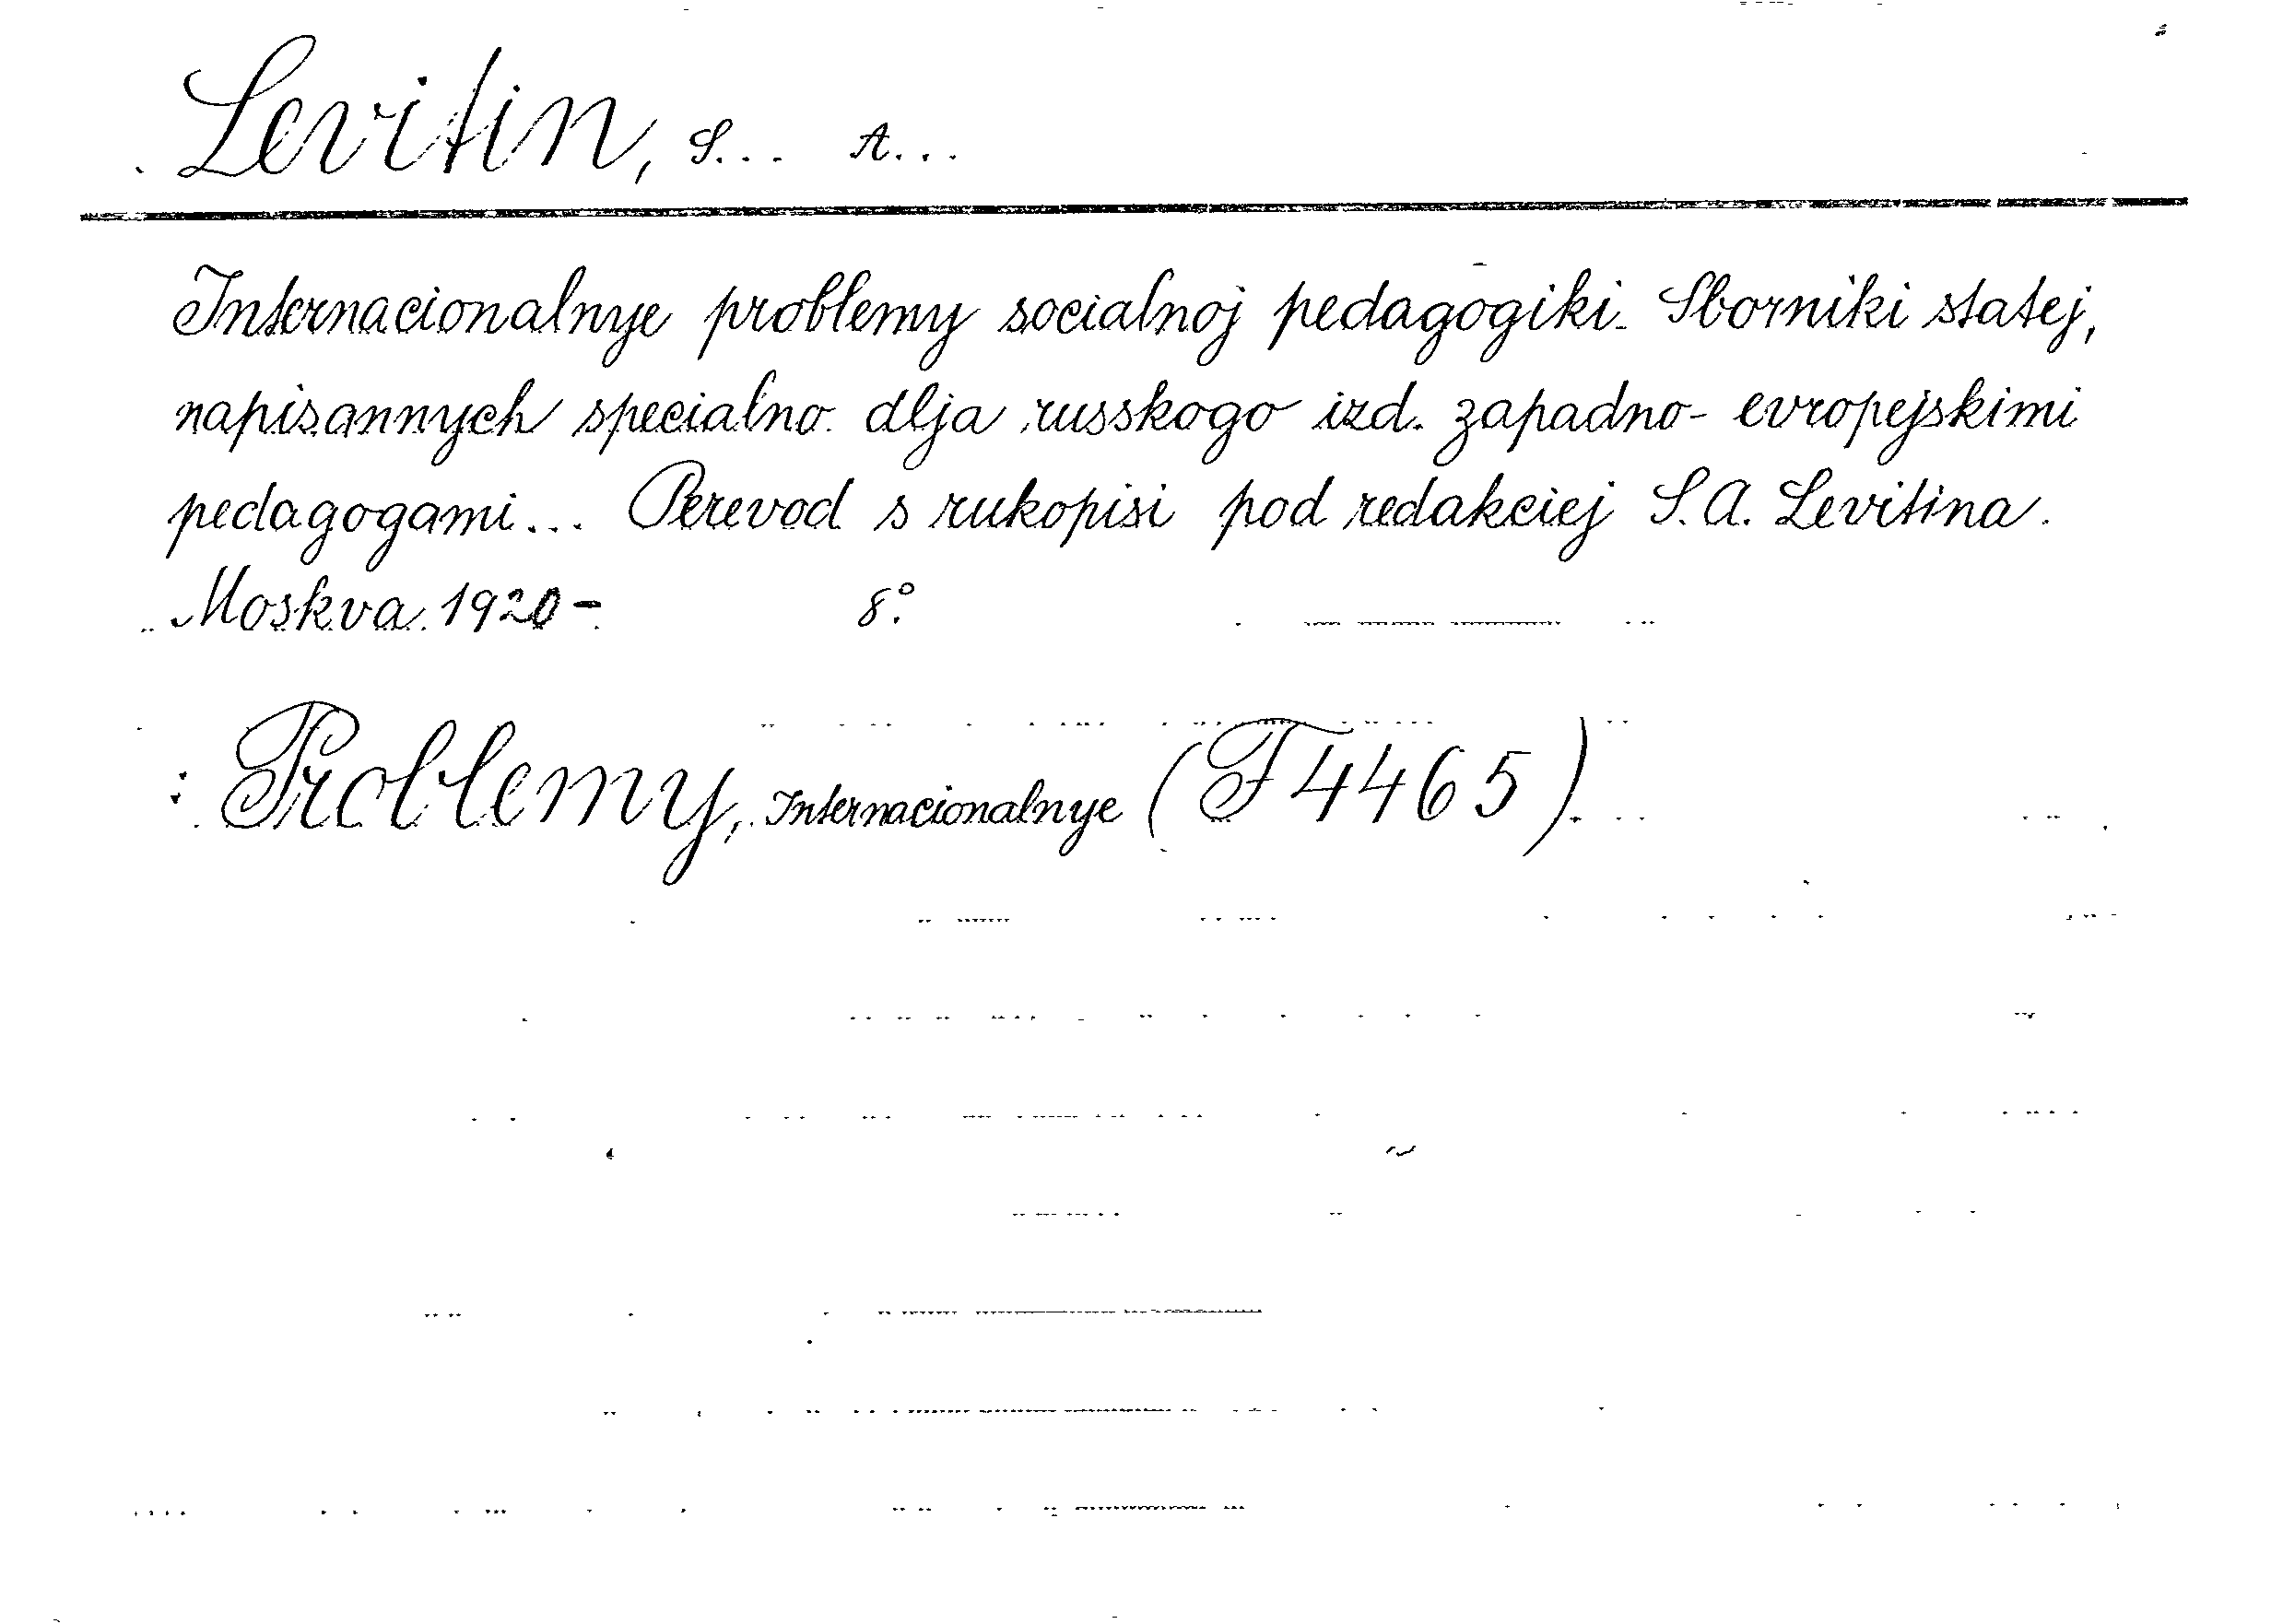 Levitin, S... A...
Internacionalnye problemy socialnoj pedagogiki. Sborniki statej,
napisannych specialno dlja russkogo izd. zapadno-evropejskimi
pedagogami... Perevod s rukopisi pod redakciej S. A. Levitina.
Moskva 1920- 8°.
: Problemy, Internacionalnye (F 4465).